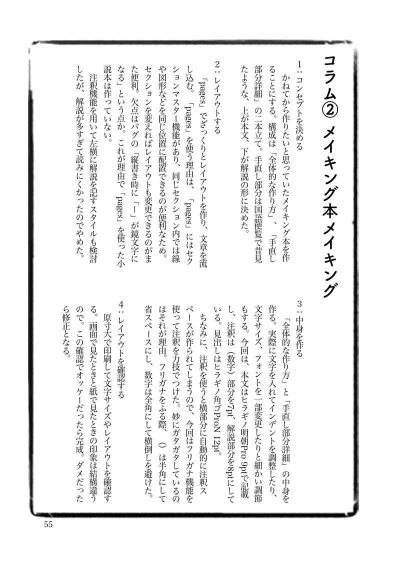 コラム② メイキング本メイキング
1：コンセプトを決める
かねてから作りたいと思っていたメイキング本を作
ることにする。構成は「全体的な作り方」、「手直し
部分詳細」の二本立て。手直し部分は国語便覧で昔見
たような、上が本文、下が解説の形に決めた。
2：レイアウトする
「pages」でざっくりとレイアウトを作り、文章を流
し込む。「pages」を使う理由は、「pages」にはセク
ションマスター機能があり、同じセクション内では線
や図形などを同じ位置に配置できるのが便利なため。
セクションを変えればレイアウトも変更できるのがま
た便利。欠点はバグの「縦書き時に「ー」が鏡文字に
なる」という点か。これが理由で「pages」を使った小
説本は作っていない。
注釈機能を用いて左横に解説を記すスタイルも検討
したが、解説が多すぎて読みにくかったのでやめた。
3：中身を作る
「全体的な作り方」と「手直し部分詳細」の中身を
作る。実際に文字を入れてインデントを調整したり、
文字サイズ、フォントを一部変更したりと細かい調節
もする。今回は、本文はヒラギノ明朝Pro 9ptで記載
し、注釈は（数字）部分を7pt、解説部分を8ptにして
いる。見出しはヒラギノ角ゴProN 12pt。
ちなみに、注釈を使うと横部分に自動的に注釈ス
ペースが作られてしまうので、今回はフリガナ機能を
使って注釈を力技でつけた。妙にガタガタしているの
はそれが理由。フリガナをふる際、（）は半角にして
省スペースにし、数字は全角にして横倒しを避けた。
4：レイアウトを確認する
原寸大で印刷して文字サイズやレイアウトを確認す
る。画面で見たときと紙で見たときの印象は結構違う
ので。この確認でオッケーだったら完成。ダメだった
ら修正となる。
55